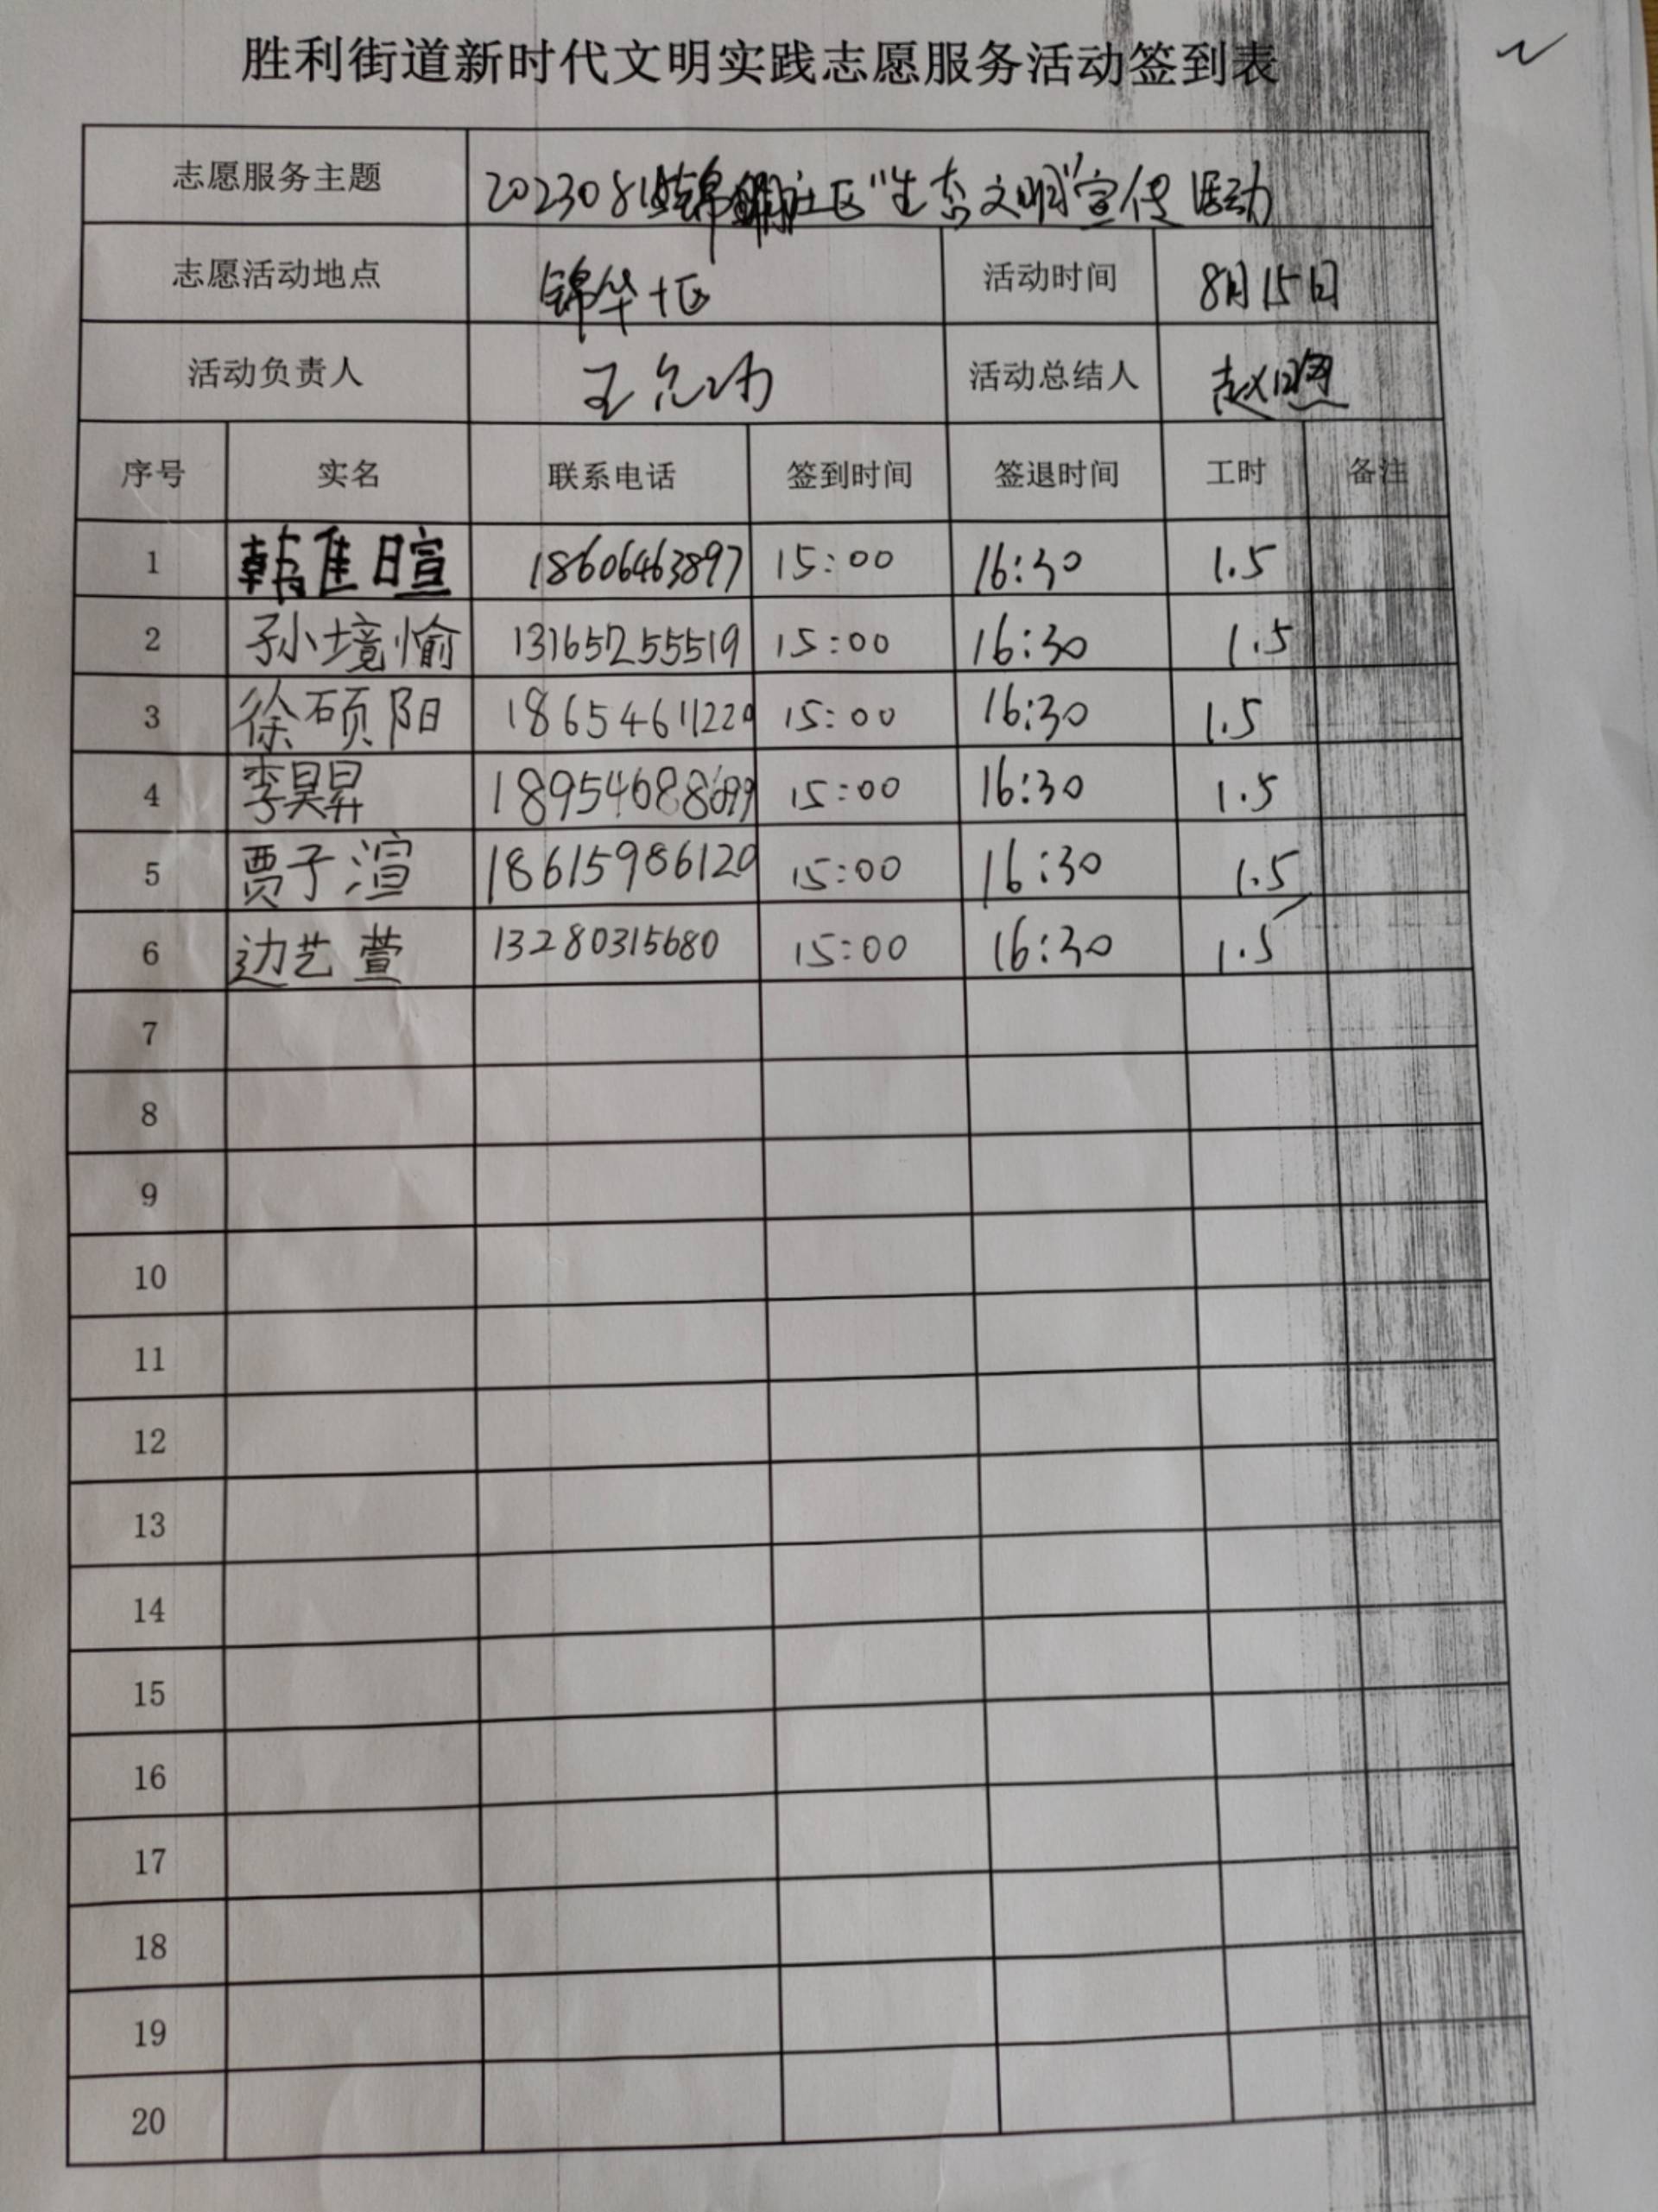 胜利街道新时代文明实践志愿服务活动签到表
志愿服务主题 20230815锦华社区“生态文明”宣传活动
志愿活动地点 锦华十区 活动时间 8月15日
活动负责人 王 活动总结人 赵
序号 实名 联系电话 签到时间 签退时间 工时 备注
1 韩佳暄 18606463897 15:00 16:30 1.5
2 孙境愉 13165255519 15:00 16:30 1.5
3 徐硕阳 18654611220 15:00 16:30 1.5
4 李昊昇 15:00 16:30 1.5
5 贾子渲 18615986120 15:00 16:30 1.5
6 边艺萱 13280315680 15:00 16:30 1.5
7
8
9
10
11
12
13
14
15
16
17
18
19
20